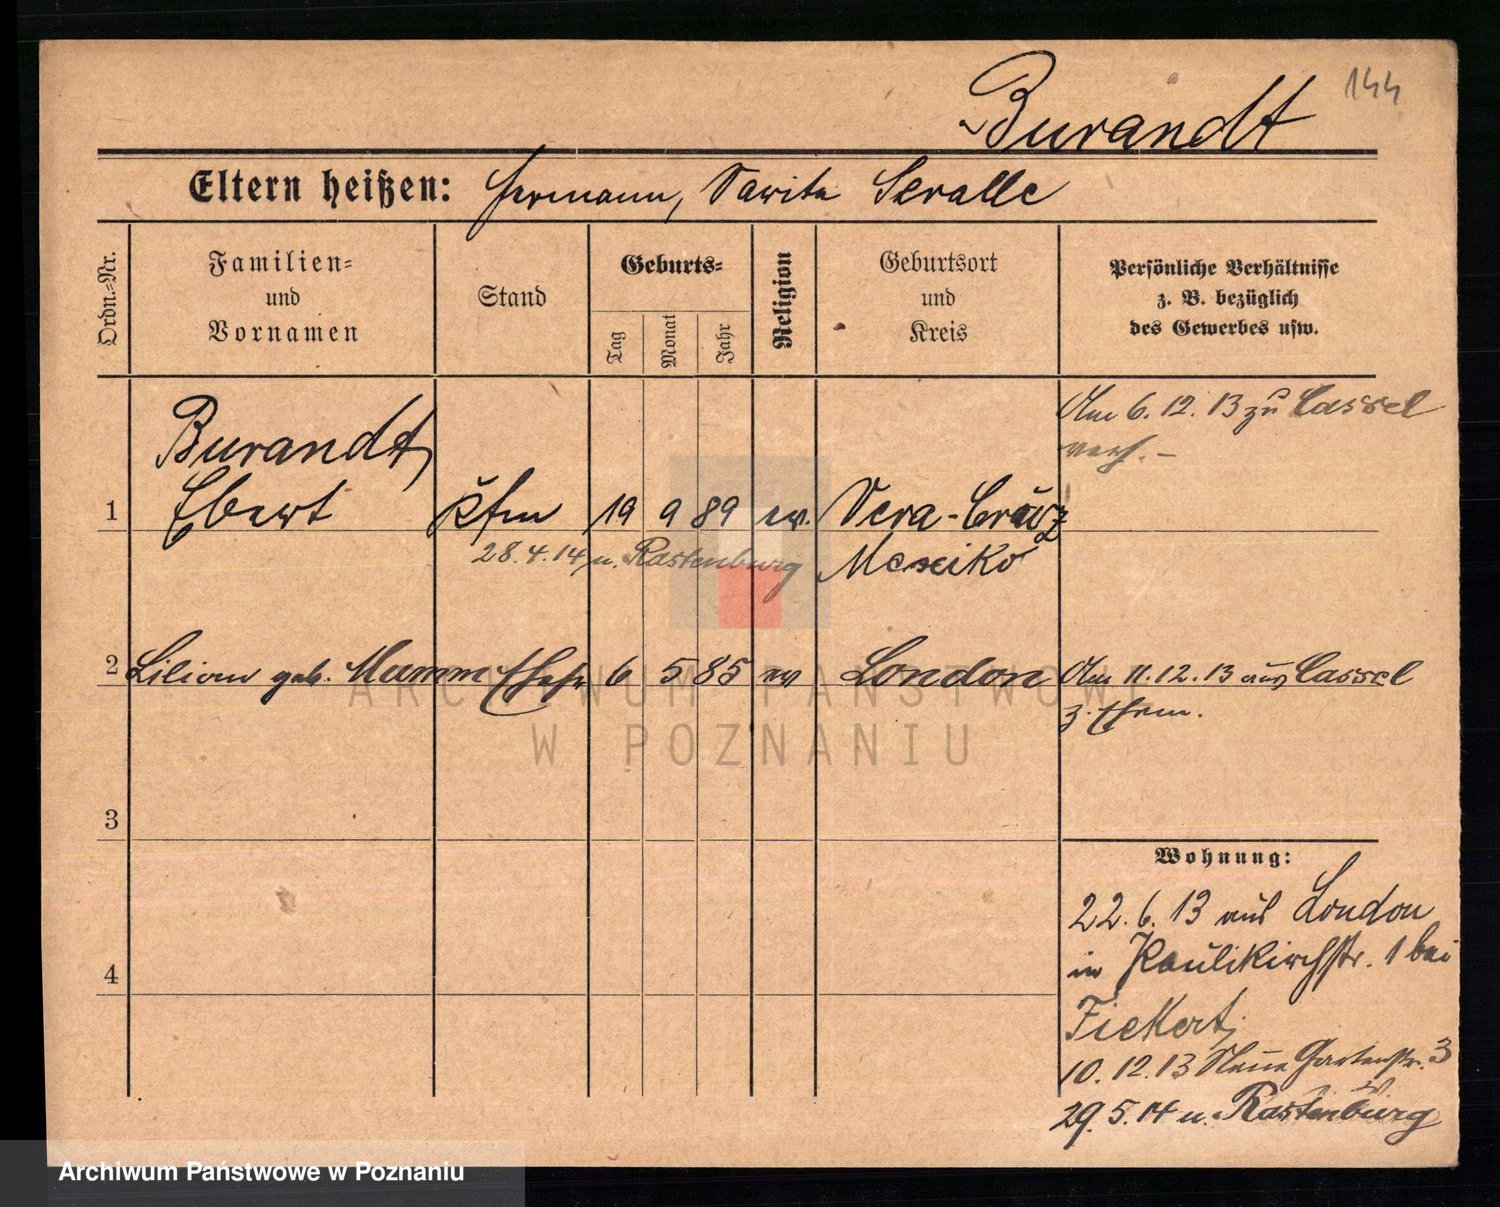 144
Burandt
Eltern heißen: Hermann, Seralle
Ordn.=Nr.
Familien=
und
Vornamen
Stand
Geburts=
Tag
Monat
Jahr
Religion
Geburtsort
und
Kreis
Persönliche Verhältnisse
z. B. bezüglich
des Gewerbes usw.
Am 6. 12. 13 zu Cassel
verh. –
Burandt,
1 Ebert Kfm 19 9 89 ev. Vera-Cruz
28. 4. 14 n. Rastenburg Mexiko
2 Lilian geb. Mumm Ehefr 6 5 85 ev London Am 11. 12. 13 aus Cassel
z. Ehem.
3
Wohnung:
22. 6. 13 aus London
in Paulikirchstr. 1 bei
4
Fiekert,
10. 12. 13 Neue Gartenstr. 3
29. 5. 14 n. Rastenburg
ARCHIWUM PAŃSTWOWE
W POZNANIU
Archiwum Państwowe w Poznaniu